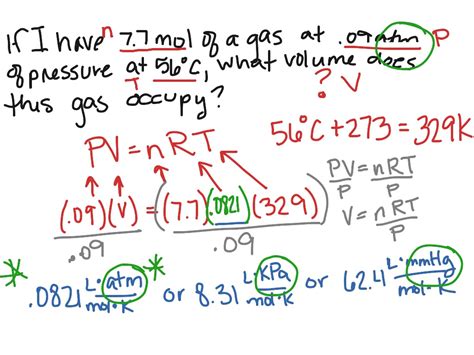 If I have n 7.7 mol of a gas at .09 atm P
of pressure at 56°C, what volume does
T ? V
this gas occupy?
56°C + 273 = 329K
PV = nRT
(.09)(V) = (7.7)(.0821)(329)
.09 .09
PV = nRT
P P
V = nRT
P
* .0821 L·atm * or 8.31 L·KPa or 62.4 L·mmHg
mol·K mol·K mol·K